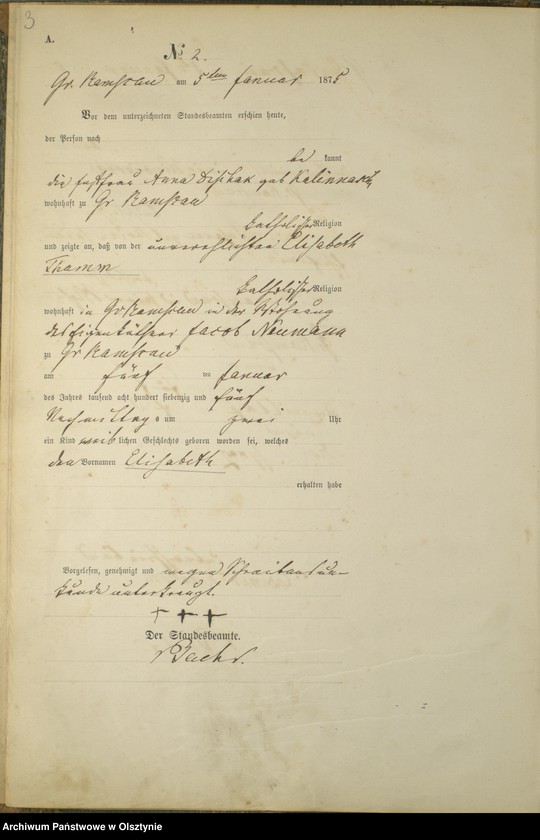 3
A.
№ 2.
Gr. Ramsau am 5ten Januar 1875
Vor dem unterzeichneten Standesbeamten erschien heute,
der Person nach
be kannt
die Anna geb Kalinnack,
wohnhaft zu Gr Ramsau
katholischer Religion
und zeigte an, daß von der unverehlichten Elisabeth
Thamm
katholischer Religion
wohnhaft in Gr Ramsau in der Wohnung
des Eigenkäthner Jacob Neumann
zu Gr Ramsau
am fünf ten Januar
des Jahres tausend acht hundert siebenzig und fünf
Nachmittag s um zwei Uhr
ein Kind weib lichen Geschlechts geboren worden sei, welches
den Vornamen Elisabeth
erhalten habe
Vorgelesen, genehmigt und wegen Schreibensun-
kunde unterkreuzt.
+ + +
Der Standesbeamte.
Archiwum Państwowe w Olsztynie